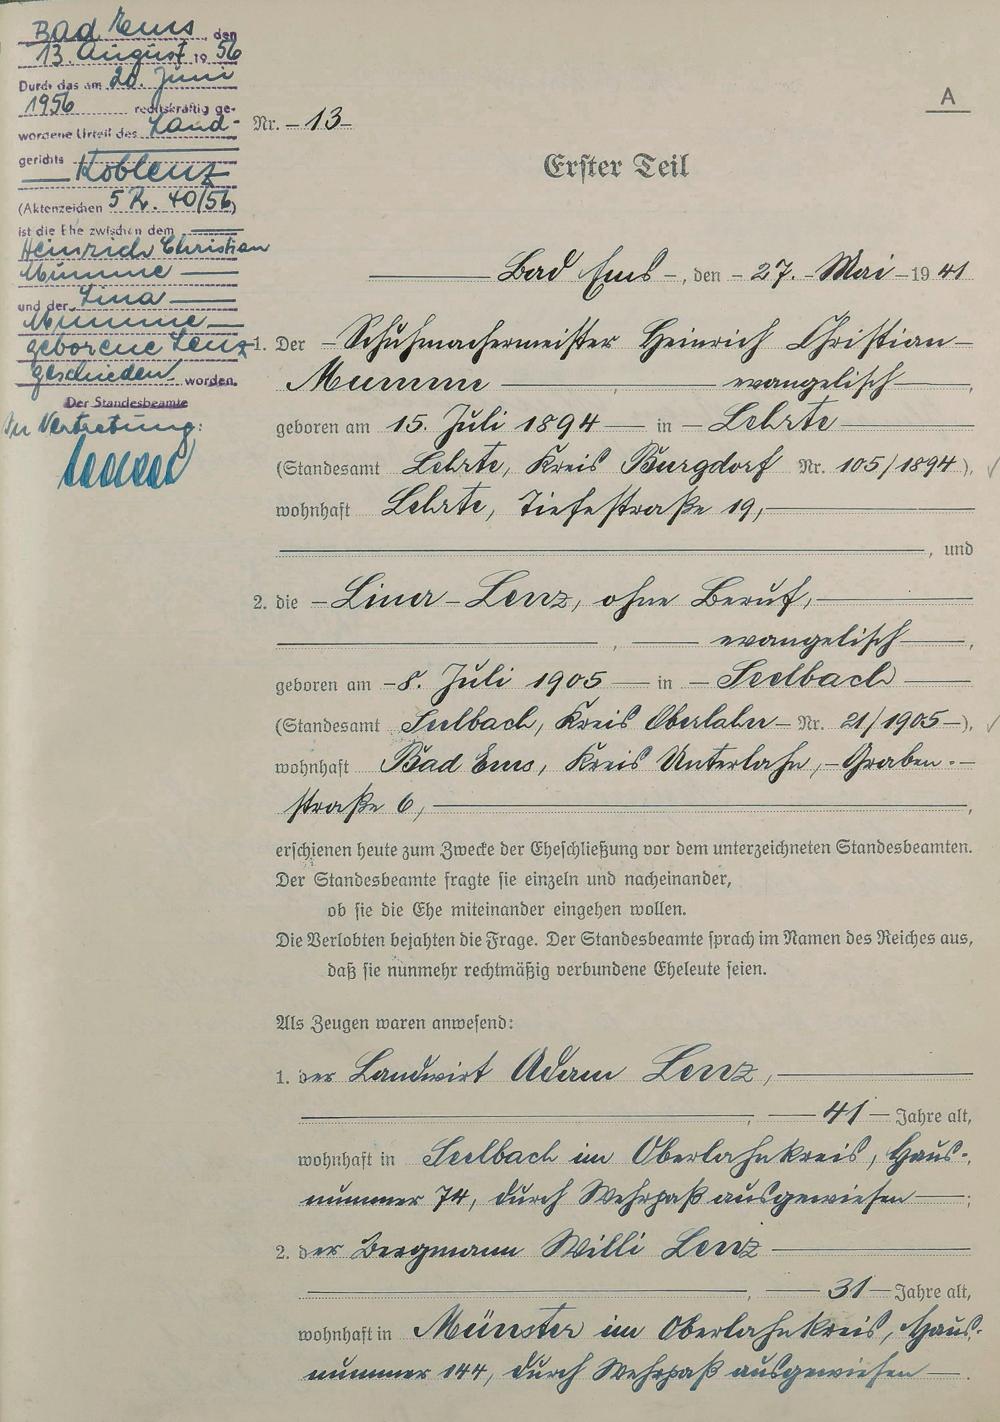 Bad Ems, den
13. August 1956
Durch das am 20. Juni
1956 rechtskräftig ge-
wordene Urteil des Land-
gerichts
Koblenz
(Aktenzeichen 5 R. 40/56)
ist die Ehe zwischen dem
Heinrich Christian
Mumme
und der Lina
Mumme
geborene Lenz
geschieden worden.
Der Standesbeamte
In Vertretung:
A
Nr. 13
Erster Teil
Bad Ems, den 27. Mai 1941
1. Der Schuhmachermeister Heinrich Christian
Mumme evangelisch,
geboren am 15. Juli 1894 in Lehrte
(Standesamt Lehrte, Kreis Burgdorf Nr. 105/1894),
wohnhaft Lehrte, Tiefestraße 19,
, und
2. die Lina Lenz, ohne Beruf,
, evangelisch,
geboren am 8. Juli 1905 in Seelbach
(Standesamt Seelbach, Kreis Oberlahn Nr. 21/1905),
wohnhaft Bad Ems, Kreis Unterlahn, Graben-
straße 6,
erschienen heute zum Zwecke der Eheschließung vor dem unterzeichneten Standesbeamten.
Der Standesbeamte fragte sie einzeln und nacheinander,
ob sie die Ehe miteinander eingehen wollen.
Die Verlobten bejahten die Frage. Der Standesbeamte sprach im Namen des Reiches aus,
daß sie nunmehr rechtmäßig verbundene Eheleute seien.
Als Zeugen waren anwesend:
1. der Landwirt Adam Lenz,
, 41 Jahre alt,
wohnhaft in Seelbach im Oberlahnkreis, Haus-
nummer 74, durch Wehrpaß ausgewiesen;
2. der Bergmann Willi Lenz
, 31 Jahre alt,
wohnhaft in Münster im Oberlahnkreis, Haus-
nummer 144, durch Wehrpaß ausgewiesen.